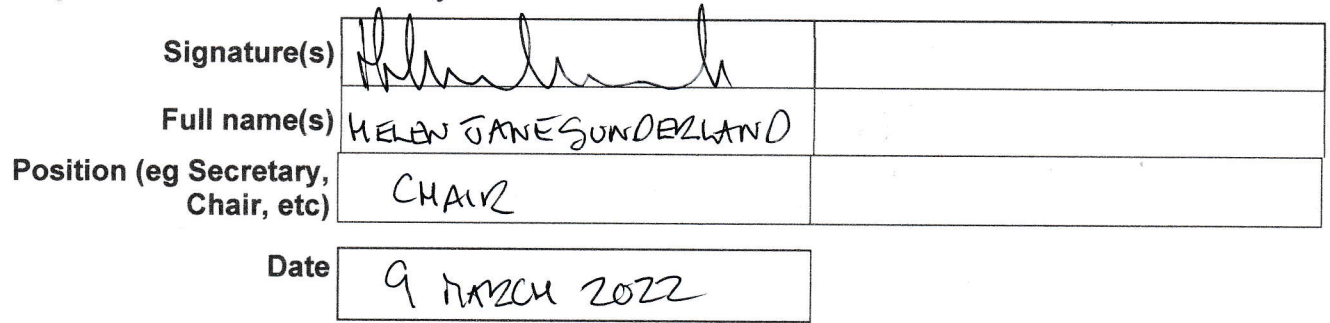 Signature(s)
Full name(s) HELEN JANE SUNDERLAND
Position (eg Secretary,
Chair, etc) CHAIR
Date 9 MARCH 2022